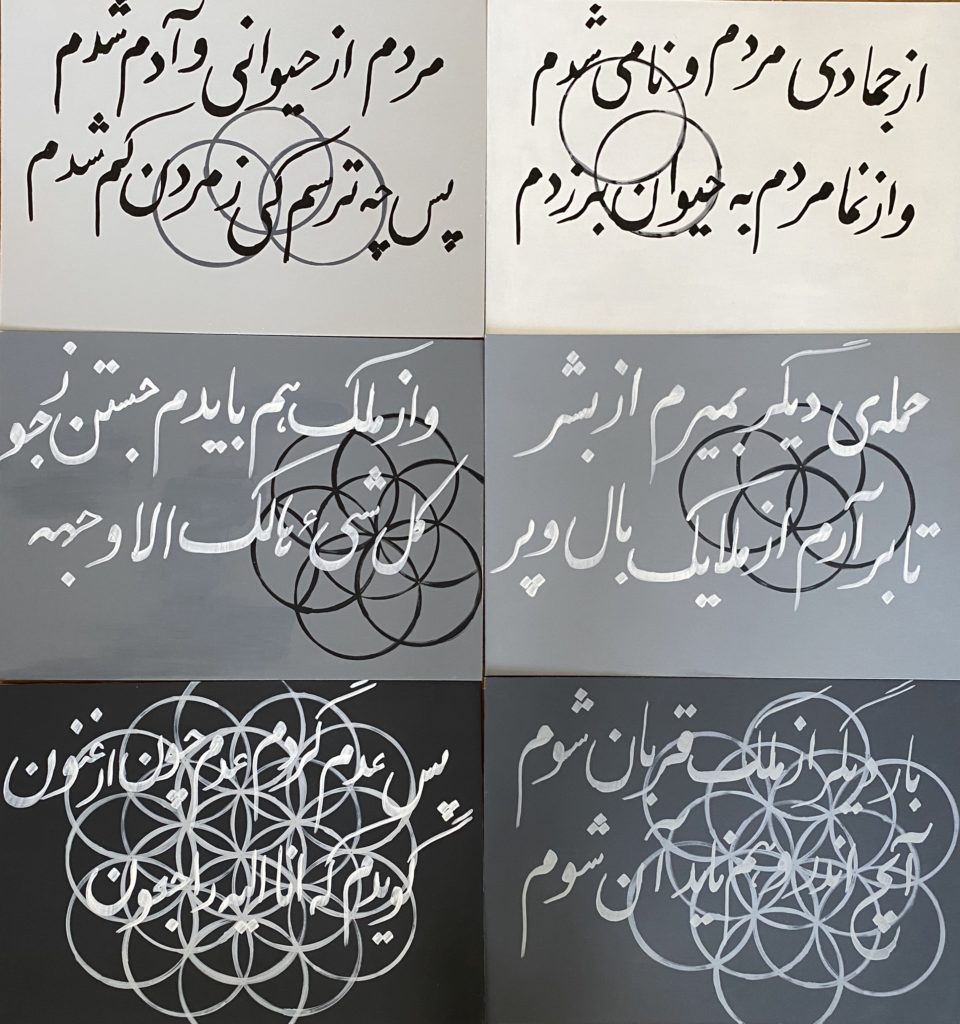 از جمادی مردم و نامی شدم
وز نما مردم به حیوان برزدم
مردم از حیوانی و آدم شدم
پس چه ترسم کی ز مردن کم شدم
حمله‌ی دیگر بمیرم از بشر
تا برآرم از ملایک بال و پر
وز ملک هم بایدم جستن ز جو
کل شیء هالک الا وجهه
بار دیگر از ملک قربان شوم
آنچ اندر وهم ناید آن شوم
پس عدم گردم عدم چون ارغنون
گویدم که انا الیه راجعون